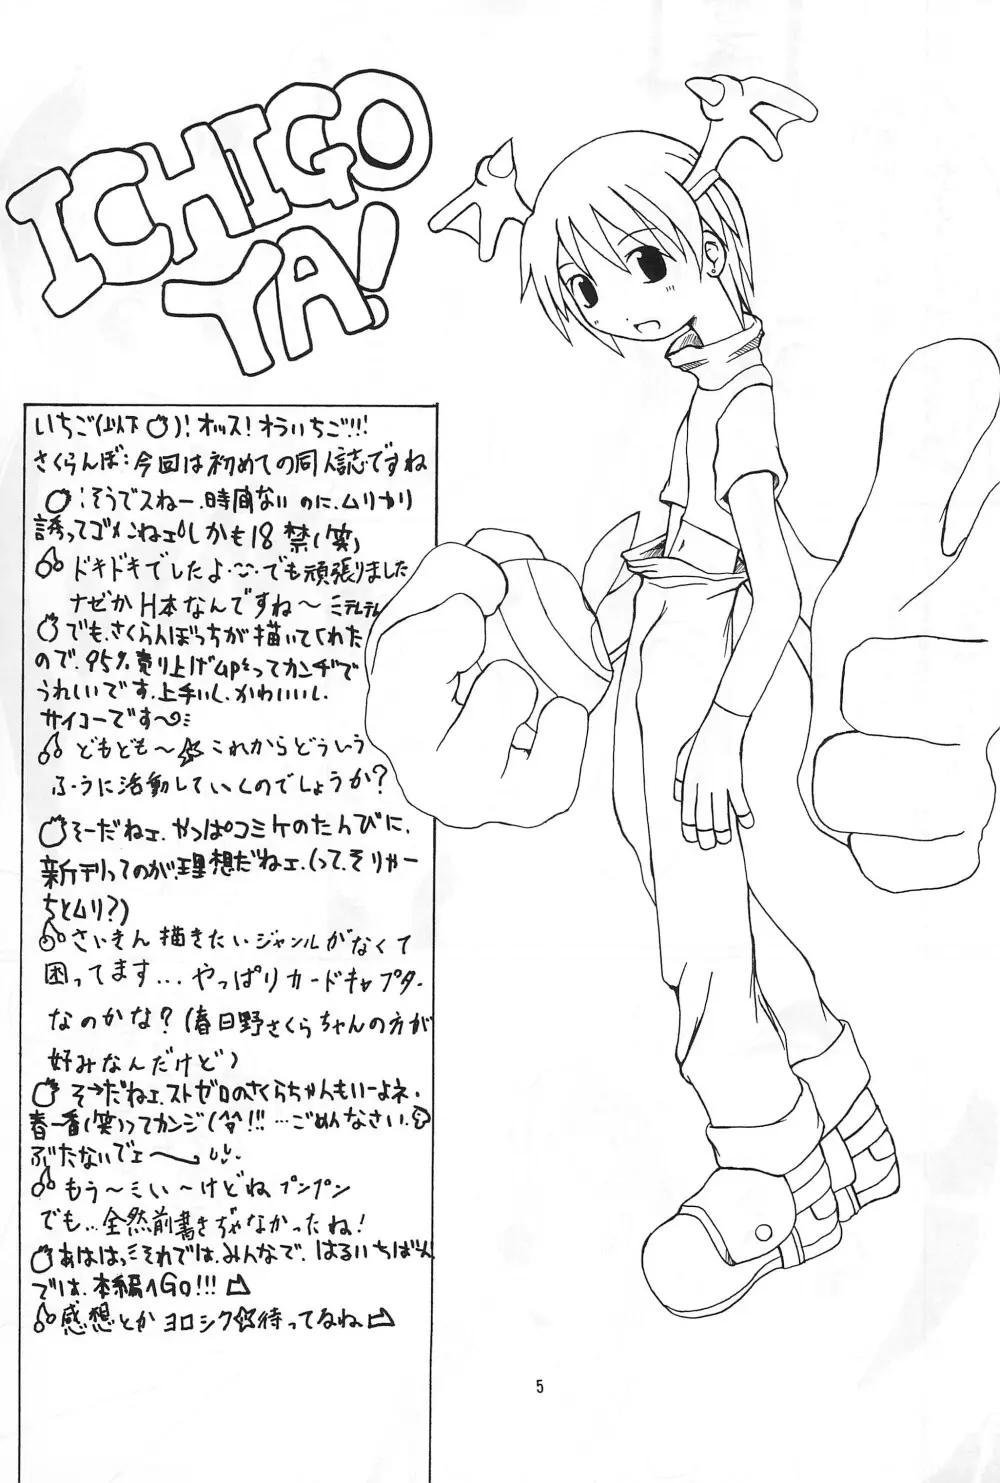 ICHIGO
YA!
いちご(以下 )! オッス! オラいちご!!!
さくらんぼ:今回は初めての同人誌ですね
:そうでスねー.時間ないのに.ムリカリ
誘ってゴメンねェ しかも18禁(笑)
ドキドキでしたよ でも頑張りました
ナゼか H本なんですね〜
でも.さくらんぼっちが描いてくれた
ので.95%売り上げUPってカンヂで
うれしいです.上手いし.かわいいし
サイコーです〜
どもども〜☆これからどういう
ふうに活動していくのでしょうか?
そーだねェ.やっぱコミケのたんびに、
新刊ってのが.理想だねェ.(って.そりゃー
ちとムリ?)
さいきん描きたいジャンルがなくて
困ってます...やっぱりカードキャプター
なのかな?(春日野さくらちゃんの方が
好みなんだけど)
そーだねェ.ストゼロのさくらちゃんもいーよネ.
春一番(笑)ってカンジ( !!! …ごめんなさい.
ぶたないでェ〜
もう〜ミい〜けどね プンプン
でも...全然前書きぢゃなかったね!
あははっミそれでは.みんなで.はるいちばん
では.本編へGo!!!
感想とか ヨロシク☆待ってるね
5